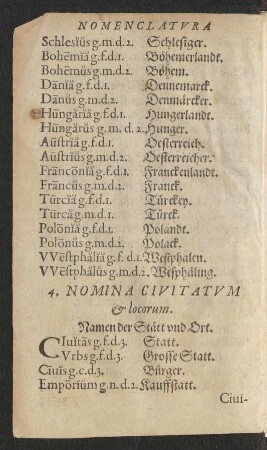 NOMENCLATVRA
Schlesĭŭs g.m.d.2. Schlesiger.
Bohēmĭă g.f.d.1. Böhemerlandt.
Bohēmŭs g.m.d.2. Böhem.
Dānĭă g.f.d.1. Dennemarck.
Dānŭs g.m.d.2. Denmärcker.
Hūngărĭă g.f.d.1. Hungerlandt.
Hūngărŭs g.m.d.2. Hunger.
Aūſtrĭă g.f.d.1. Oesterreich.
Aūſtrĭŭs g.m.d.2. Oesterreicher.
Frāncōnĭă g.f.d.1. Franckenlandt.
Frāncŭs g.m.d.2. Franck.
Tūrcĭă g.f.d.1. Türckey.
Tūrcă g.m.d.1. Türck.
Polōnĭă g.f.d.1. Polandt.
Polōnŭs g.m.d.2. Polack.
VVēſtphălĭă g.f.d.1. Westphalen.
VVēſtphălŭs g.m.d.2. Wesphäling.
4. NOMINA CIVITATVM
& locorum.
Namen der Stätt vnd Ort.
CIuĭtās g.f.d.3. Statt.
Vrbs g.f.d.3. Grosse Statt.
Cīuĭs g.c.d.3. Bürger.
Empŏrĭŭm g.n.d.2. Kauffstatt.
Ciui-